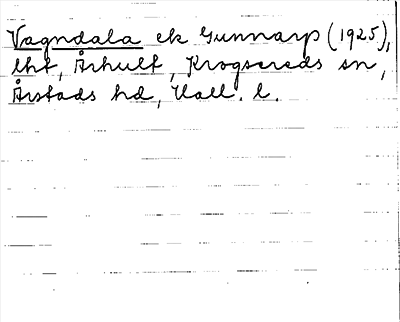 Vagndala ek Gunnarp (1925),
lht, Århult, Krogsereds sn,
Årstads hd, Hall. l.